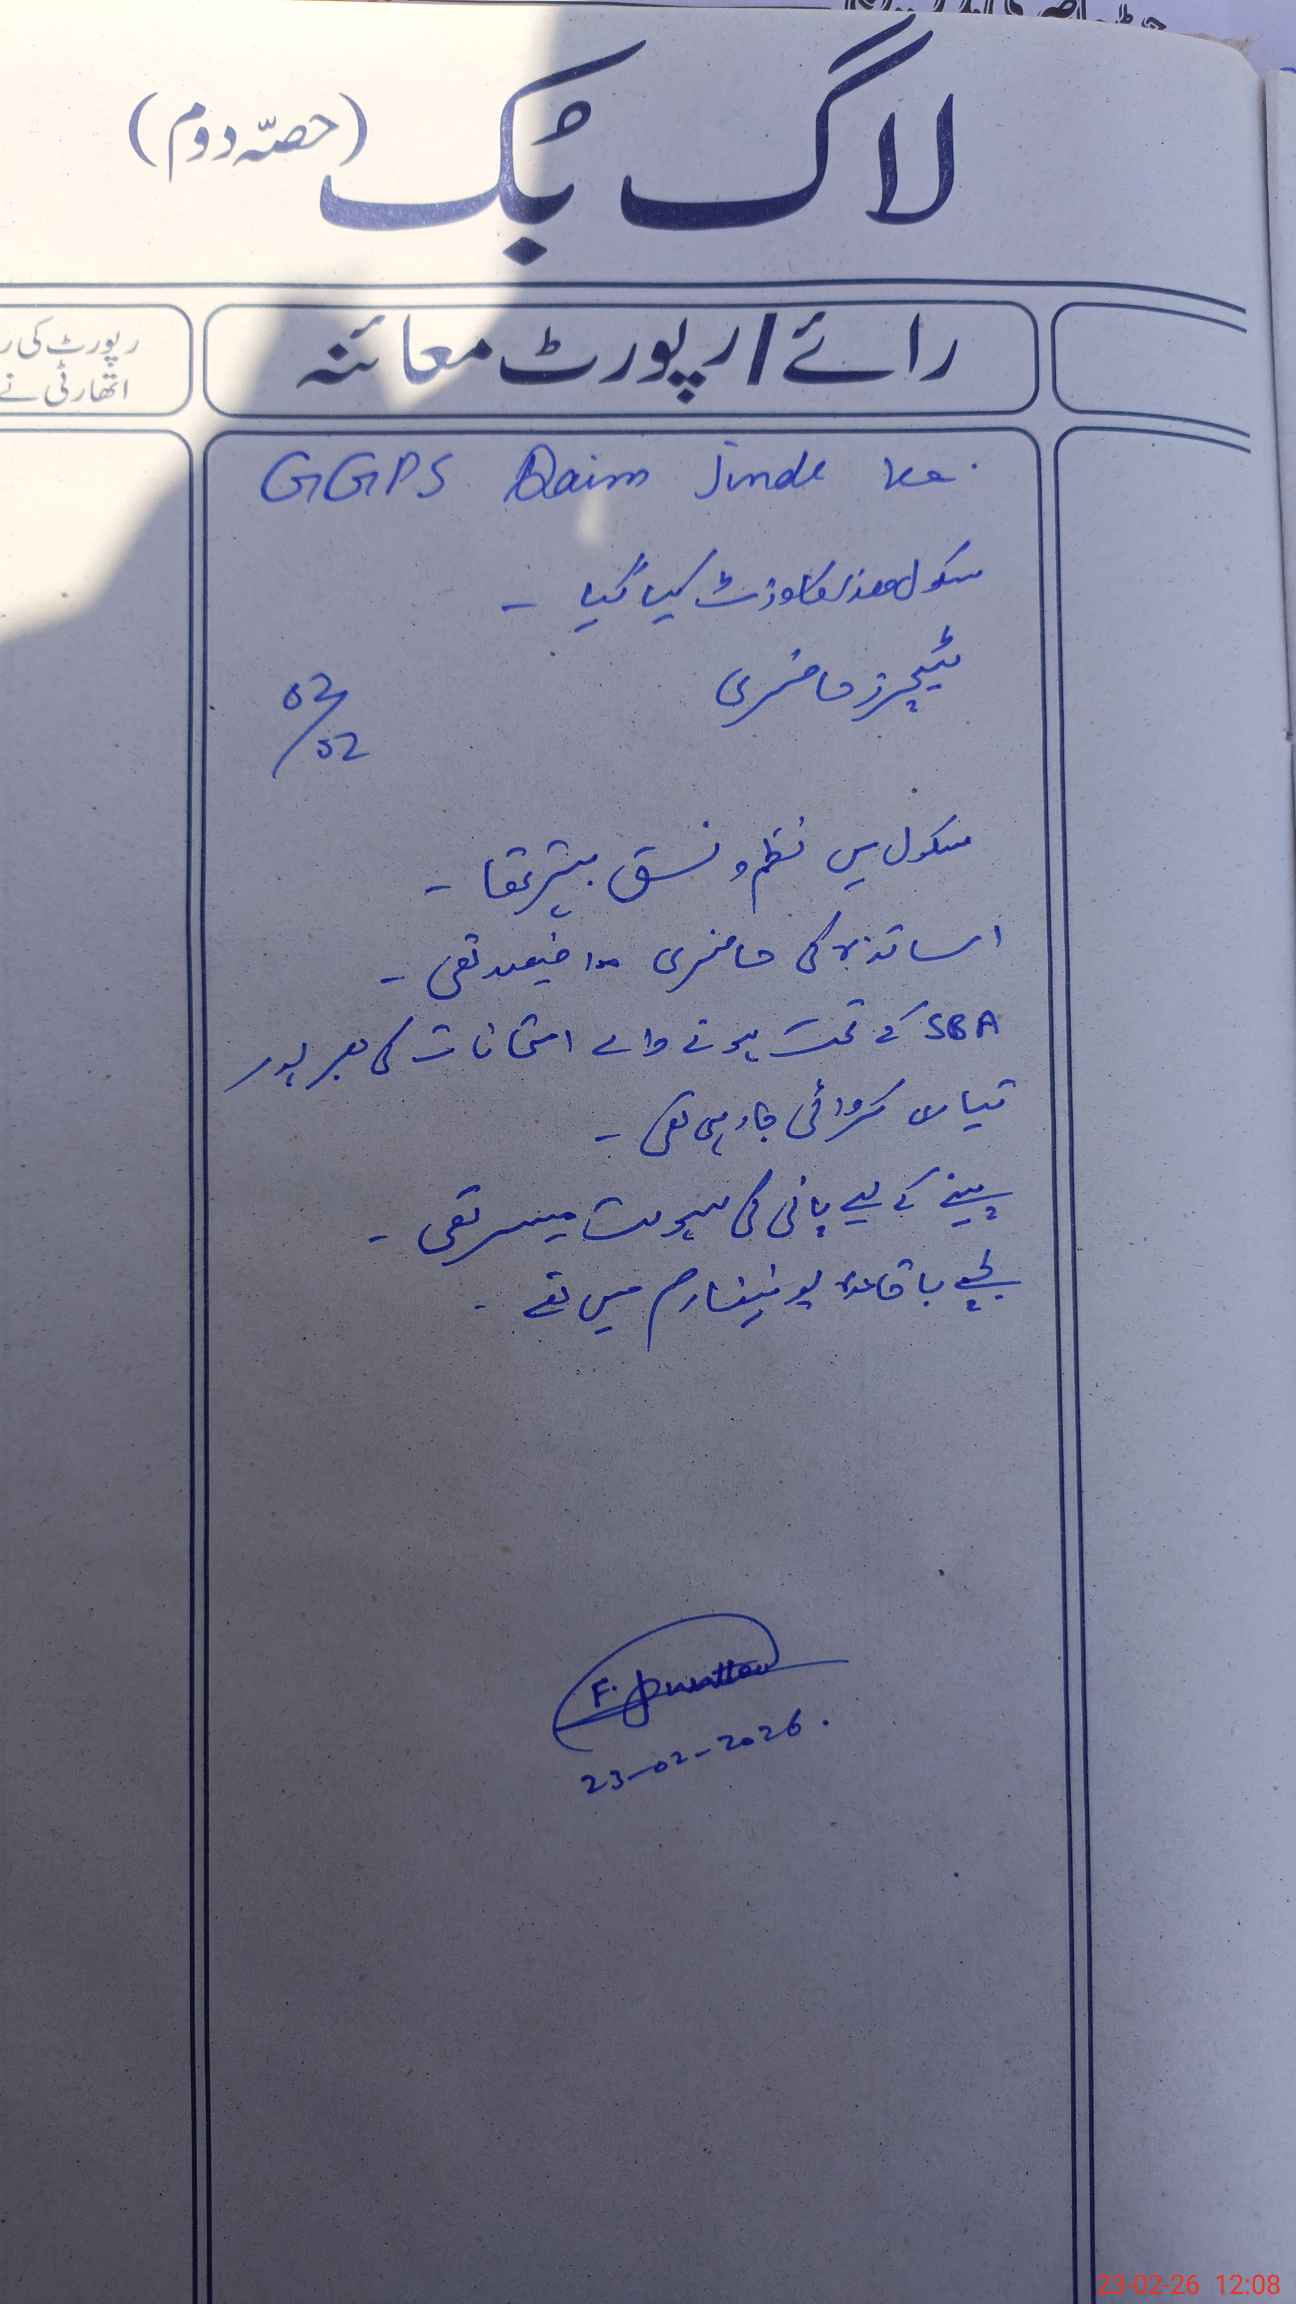 لاگ بُک (حصّہ دوم)
رائے / رپورٹ معائنہ
رپورٹ کی
اتھارٹی نے
GGPS Qaim Jinde ka.
سکول ھذا کا وزٹ کیا گیا -
ٹیچرز حاضری 02/02
سکول میں نظم و نسق بہتر تھا -
اساتذہ کی حاضری 100 فیصد تھی -
SBA کے تحت ہونے والے امتحانات کی بھرپور
تیاری کروائی جا رہی تھی -
پینے کے لیے پانی کی سہولت میسر تھی -
بچے باقاعدہ یونیفارم میں تھے -
23-02-2026.
23-02-26 12:08